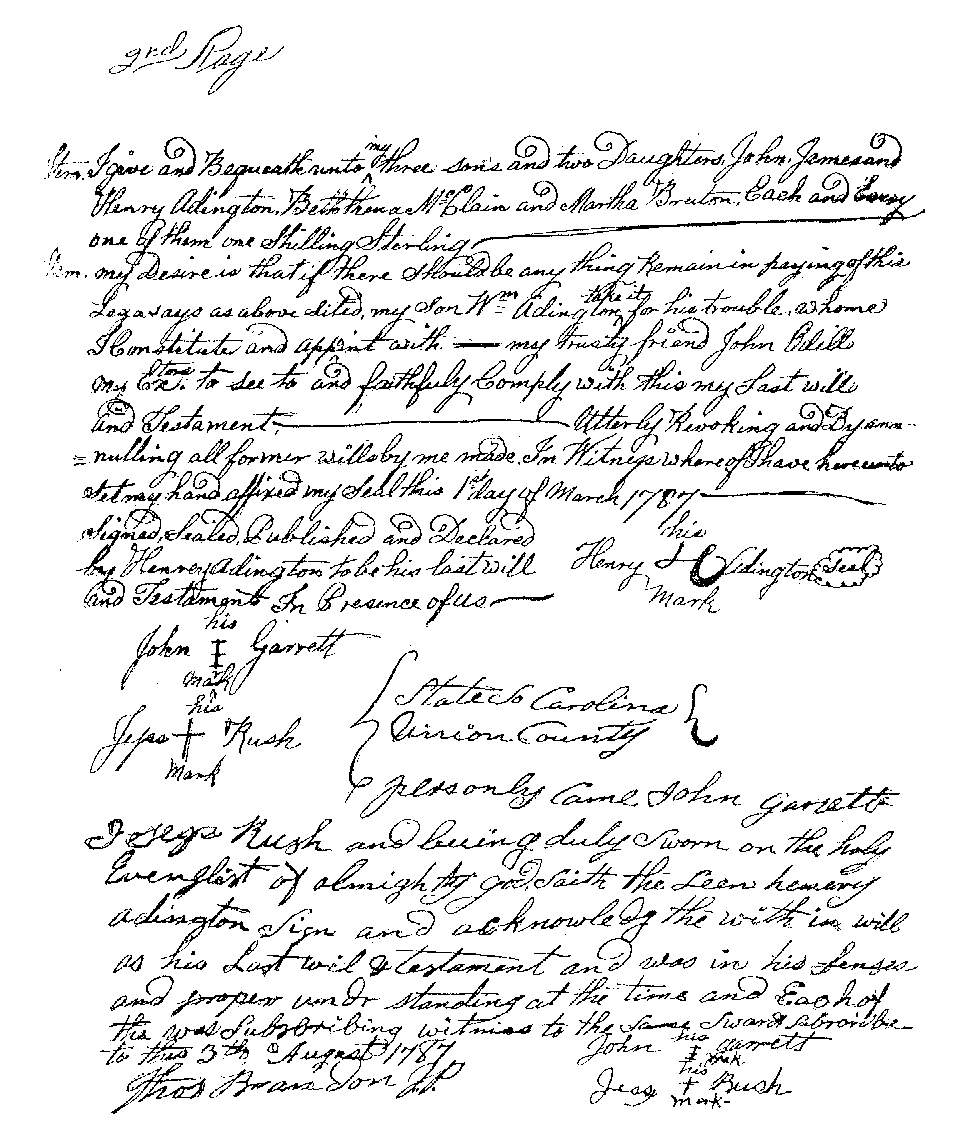 3rd Page
Item. I give and Bequeath unto my three sons and two Daughters, John, James and
Henry Adington, Beththena McClain and Martha Bruton, Each and Every
one of them one Shilling Sterling
Item. my desire is that if there should be any thing Remain in paying of this
Legasays as above dited, my Son Wm Adington take it, for his trouble, whome
I Constitute and appint with my trusty friend John Odill
my Extors. to see to and faithfuly Comply with this my Last will
and Testament, Utterly Revoking and Dyann-
=nulling all former wills by me made. In Witness whereof I have hereunto
Set my hand affixed my Seal this 1st day of March 1787
Signed, Sealed, Published and Declared
by Henrey Adington to be his last will
and Testament In Presence of us
his
Henry Adington Seal
Mark
his
John I Garrett
Mark
his
Jess + Rush
Mark
State So Carolina
Union County
personly Came John Garrett
Rush and being duly Sworn on the holy
Evenglist of almighty god, saith the Seen henrary
adington Sign and acknowledg the with in will
as his Last wil & testament and was in his Senses
and proper undr standing at the time and Each of
the was Subscribing witness to the Same Sward
to this 3th August 1787
his
John I garrett
mark
his
Jess + Rush
mark
Thos Brandon JP